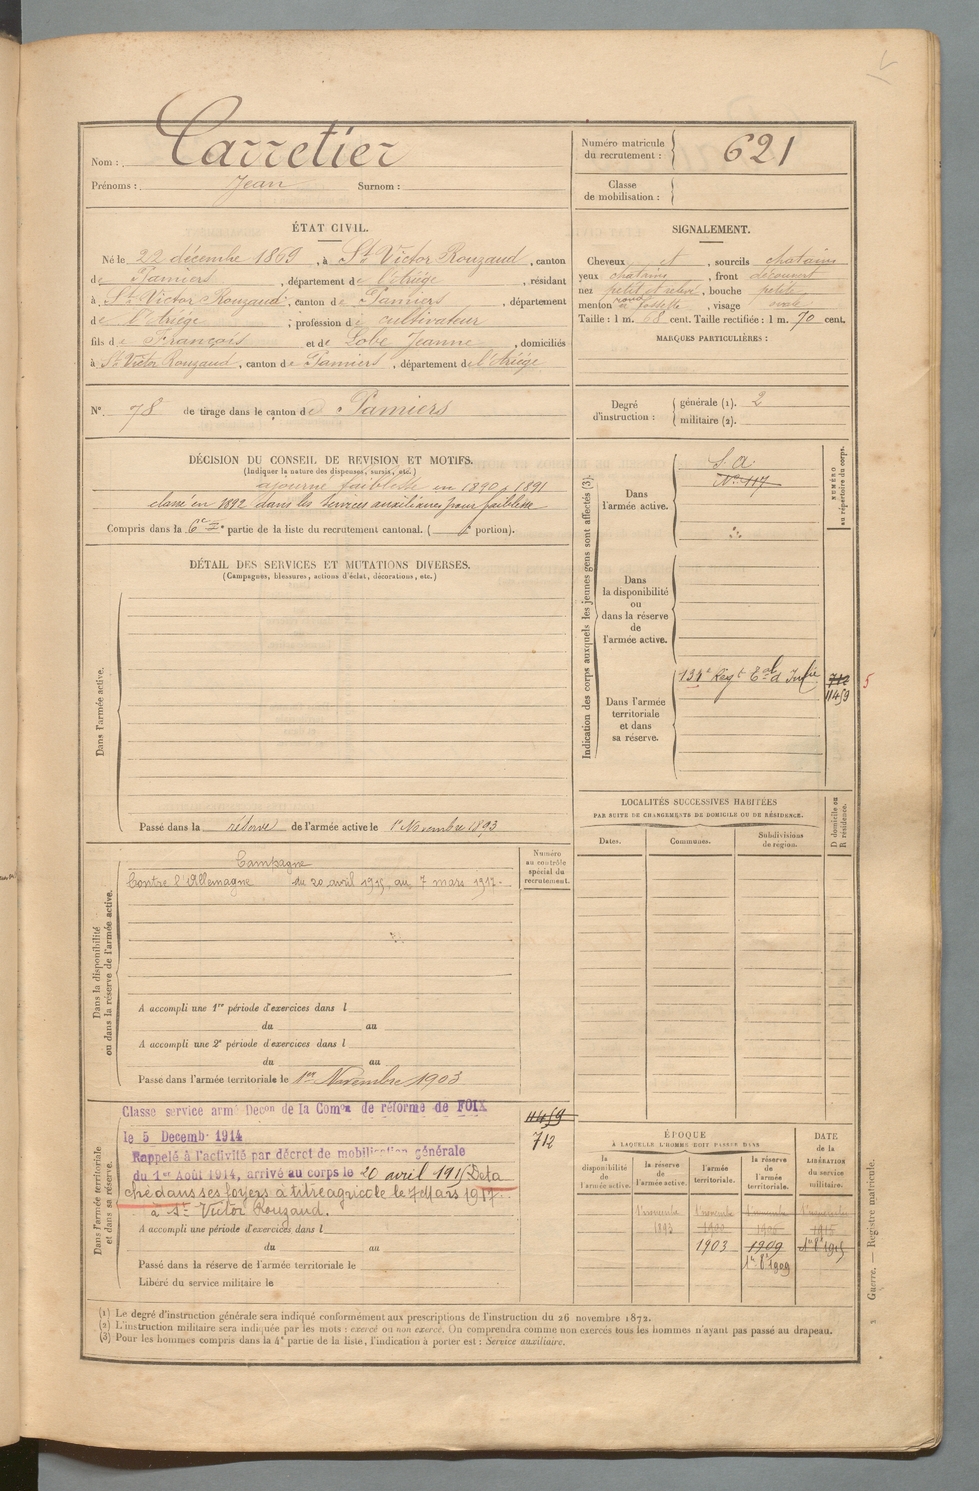 Nom : Carretier
Prénoms : Jean Surnom :
Numéro matricule du recrutement : 621
Classe de mobilisation :
ÉTAT CIVIL.
Né le 22 décembre 1869, à St Victor Rouzaud, canton
de Pamiers, département de l'Ariège, résidant
à St Victor Rouzaud, canton de Pamiers, département
de l'Ariège, profession de cultivateur
fils de François et de Lobe Jeanne, domiciliés
à St Victor Rouzaud, canton de Pamiers, département de l'Ariège
SIGNALEMENT.
Cheveux et, sourcils chatains
yeux chatains, front découvert
nez petit et relevé, bouche petite
menton rond à fossette, visage ovale
Taille : 1 m. 68 cent. Taille rectifiée : 1 m. 70 cent.
MARQUES PARTICULIÈRES :
N° 78 de tirage dans le canton de Pamiers
Degré d'instruction : générale (1). 2
militaire (2).
DÉCISION DU CONSEIL DE REVISION ET MOTIFS.
(Indiquer la nature des dispenses, sursis, etc.)
ajourné faiblesse en 1890 1891
classé en 1892 dans les services auxiliaires pour faiblesse
Compris dans la 6e partie de la liste du recrutement cantonal. ( portion).
DÉTAIL DES SERVICES ET MUTATIONS DIVERSES.
(Campagnes, blessures, actions d'éclat, décorations, etc.)
Dans l'armée active.
Passé dans la réserve de l'armée active le 1er Novembre 1893
Indication des corps auxquels les jeunes gens sont affectés (3).
NUMÉRO au répertoire du corps.
Dans l'armée active.
S. A.
N° 117
Dans la disponibilité ou dans la réserve de l'armée active.
Dans l'armée territoriale et dans sa réserve.
134e Régt Eal d'Infie
712
11459
5
LOCALITÉS SUCCESSIVES HABITÉES
PAR SUITE DE CHANGEMENTS DE DOMICILE OU DE RÉSIDENCE.
Dates. Communes. Subdivisions de région.
D domicile ou R résidence.
Dans la disponibilité ou dans la réserve de l'armée active.
Numéro au contrôle spécial du recrutement.
Campagne
Contre l'Allemagne du 20 avril 1915 au 7 mars 1917.
A accompli une 1re période d'exercices dans l
du au
A accompli une 2e période d'exercices dans l
du au
Passé dans l'armée territoriale le 1er Novembre 1903
Dans l'armée territoriale et dans sa réserve.
11459
712
Classe service armé Decon de la Comon de réforme de FOIX
le 5 Decemb. 1914
Rappelé à l'activité par décret de mobilisation générale
du 1er Août 1914, arrivé au corps le 20 avril 1915 Déta
ché dans ses foyers à titre agricole le 7 Mars 1917.
à St Victor Rouzaud.
A accompli une période d'exercices dans l
du au
Passé dans la réserve de l'armée territoriale le
Libéré du service militaire le
ÉPOQUE
À LAQUELLE L'HOMME DOIT PASSER DANS
la disponibilité de l'armée active. la réserve de l'armée active. l'armée territoriale. la réserve de l'armée territoriale.
DATE de la LIBÉRATION du service militaire.
1893 1900 1906 1915
1903 1909 1er 8e 1915
1er 8e 1909
(1) Le degré d'instruction générale sera indiqué conformément aux prescriptions de l'instruction du 26 novembre 1872.
(2) L'instruction militaire sera indiquée par les mots : exercé ou non exercé. On comprendra comme non exercés tous les hommes n'ayant pas passé au drapeau.
(3) Pour les hommes compris dans la 4e partie de la liste, l'indication à porter est : Service auxiliaire.
Guerre. — Registre matricule.